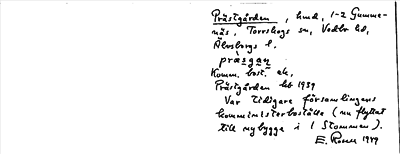 Prästgården, hmd, 1-2 Gumme-
näs, Torrskogs sn, Vedbo hd,
Älvsborgs l.
præsgan
Komm. bost. ek,
Prästgården hbt 1939
Var tidigare församlingens
komministerboställe (nu flyttat
till nybygge i 1 Stommen).
E. Rosen 1949